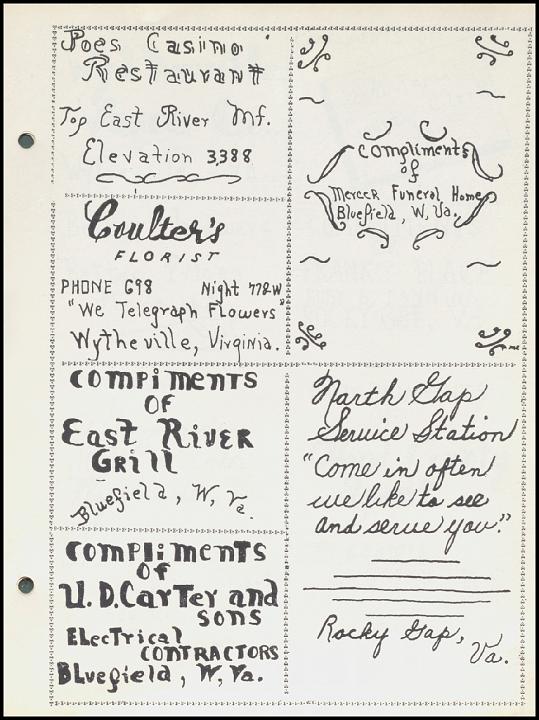 Joes Casino
Restaurant
Top East River Mt.
Elevation 3,388
Coulter's
FLORIST
PHONE 698 Night 778-W
"We Telegraph Flowers"
Wytheville, Virginia.
COMPIMENTS
OF
EAST RIVER
GRILL
Bluefield, W, Va.
COMPLIMENTS
OF
U. D. CARTER and
SONS
ELECTRICAL
CONTRACTORS
BLuefield, W, Va.
Compliments
of
Mercer Funeral Home
Bluefield, W, Va.
North Gap
Service Station
"Come in often
we like to see
and serve you."
Rocky Gap,
Va.